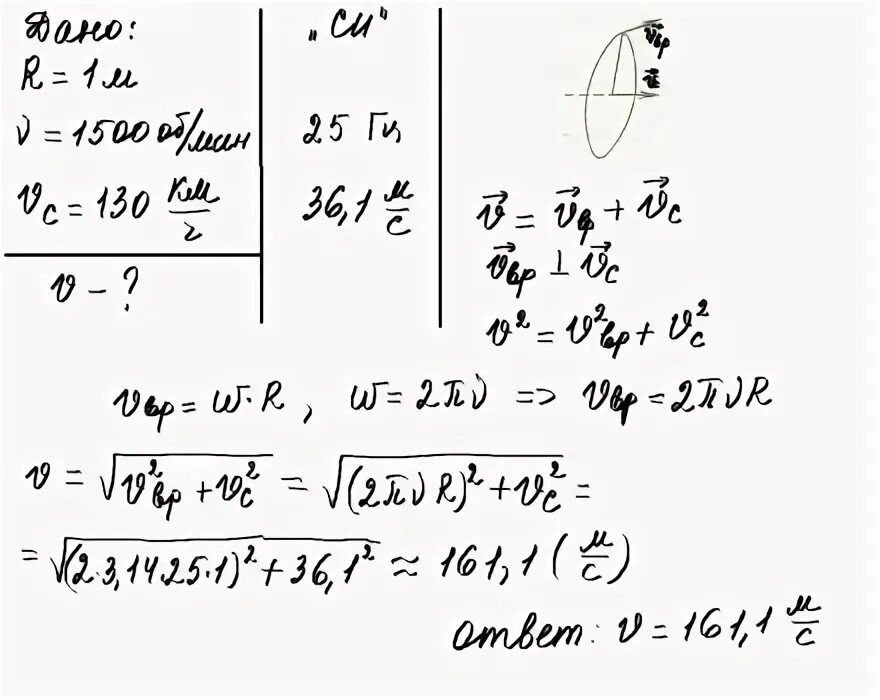 Дано:
R = 1 м
ν = 1500 об/мин
𝑣с = 130 км/г
𝑣 – ?
„СИ"
25 Гц
36,1 м/с
v⃗вр
v⃗ = v⃗вр + v⃗с
v⃗вр ⊥ v⃗с
v² = v²вр + v²с
vвр = ω · R , ω = 2πν => vвр = 2πνR
v = √(v²вр + v²с) = √((2πνR)² + v²с) =
= √((2·3,14·25·1)² + 36,1²) ≈ 161,1 (м/с)
ответ: v = 161,1 м/с